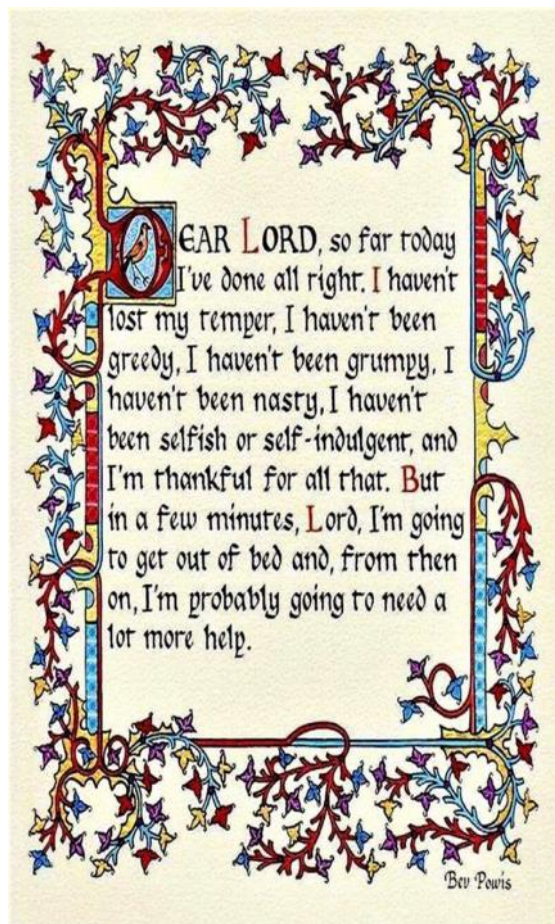 DEAR LORD, so far today
I've done all right. I haven't
lost my temper, I haven't been
greedy, I haven't been grumpy, I
haven't been nasty, I haven't
been selfish or self-indulgent, and
I'm thankful for all that. But
in a few minutes, Lord, I'm going
to get out of bed and, from then
on, I'm probably going to need a
lot more help.
Bev Powis